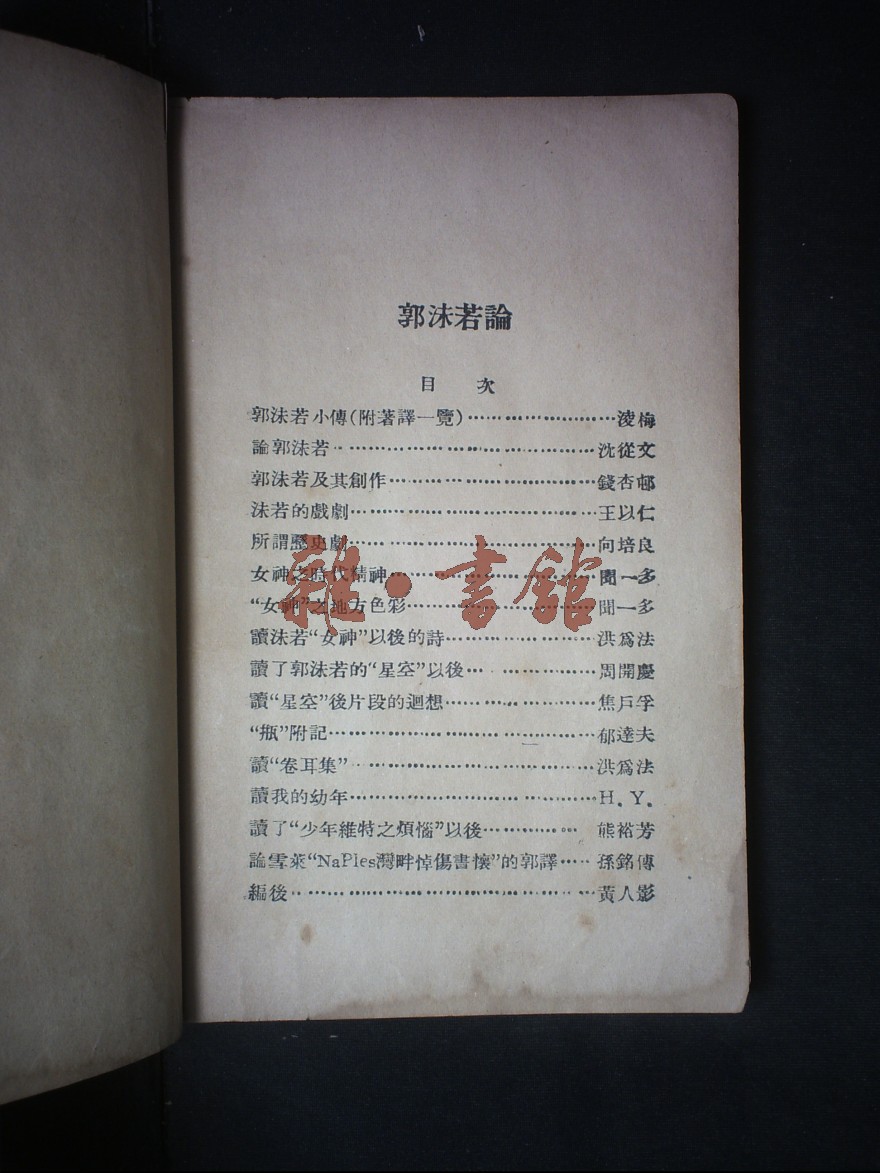 郭沫若論
目 次
郭沫若小傳(附著譯一覽)…………………凌梅
論郭沫若…………………………………沈從文
郭沫若及其創作…………………………錢杏邨
沫若的戲劇………………………………王以仁
所謂歷史劇………………………………向培良
女神之時代精神…………………………聞一多
“女神”之地方色彩………………………聞一多
讀沫若“女神”以後的詩…………………洪爲法
讀了郭沫若的“星空”以後………………周開慶
讀“星空”後片段的迴想…………………焦戶孚
“瓶”附記…………………………………郁達夫
讀“卷耳集”………………………………洪爲法
讀我的幼年………………………………H. Y.
讀了“少年維特之煩惱”以後……………熊裕芳
論雪萊“NaPles灣畔悼傷書懷”的郭譯……孫銘傳
編後………………………………………黃人影
雜·書館